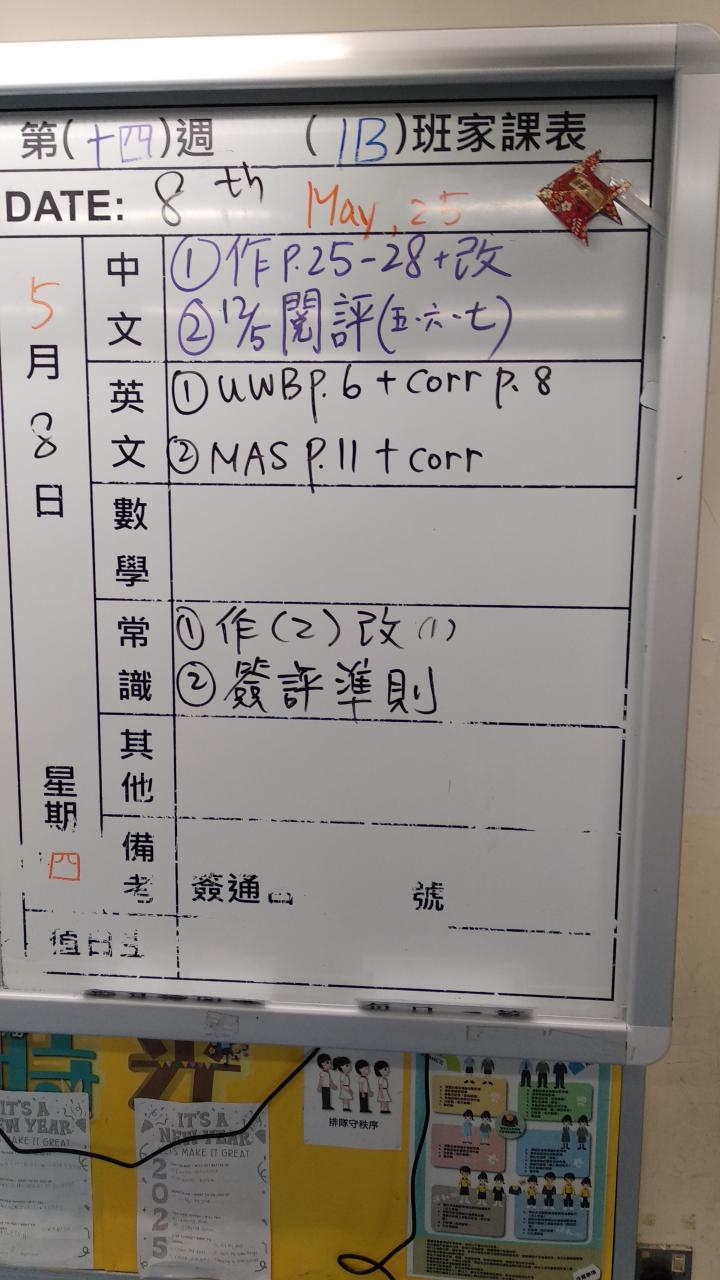 第(十四)週 (1B)班家課表
DATE: 8th May, 25
5月8日
星期四
中文
①作P.25-28+改
②12/5 閱評(五.六.七)
英文
①UWB p.6 + corr p.8
②MAS P.11 + corr
數學
常識
①作(2)改(1)
②簽評準則
其他
備考
簽通告 號
值日生
IT'S A
NEW YEAR
MAKE IT GREAT
IT'S A
NEW YEAR
LET'S MAKE IT GREAT
2025
排隊守秩序